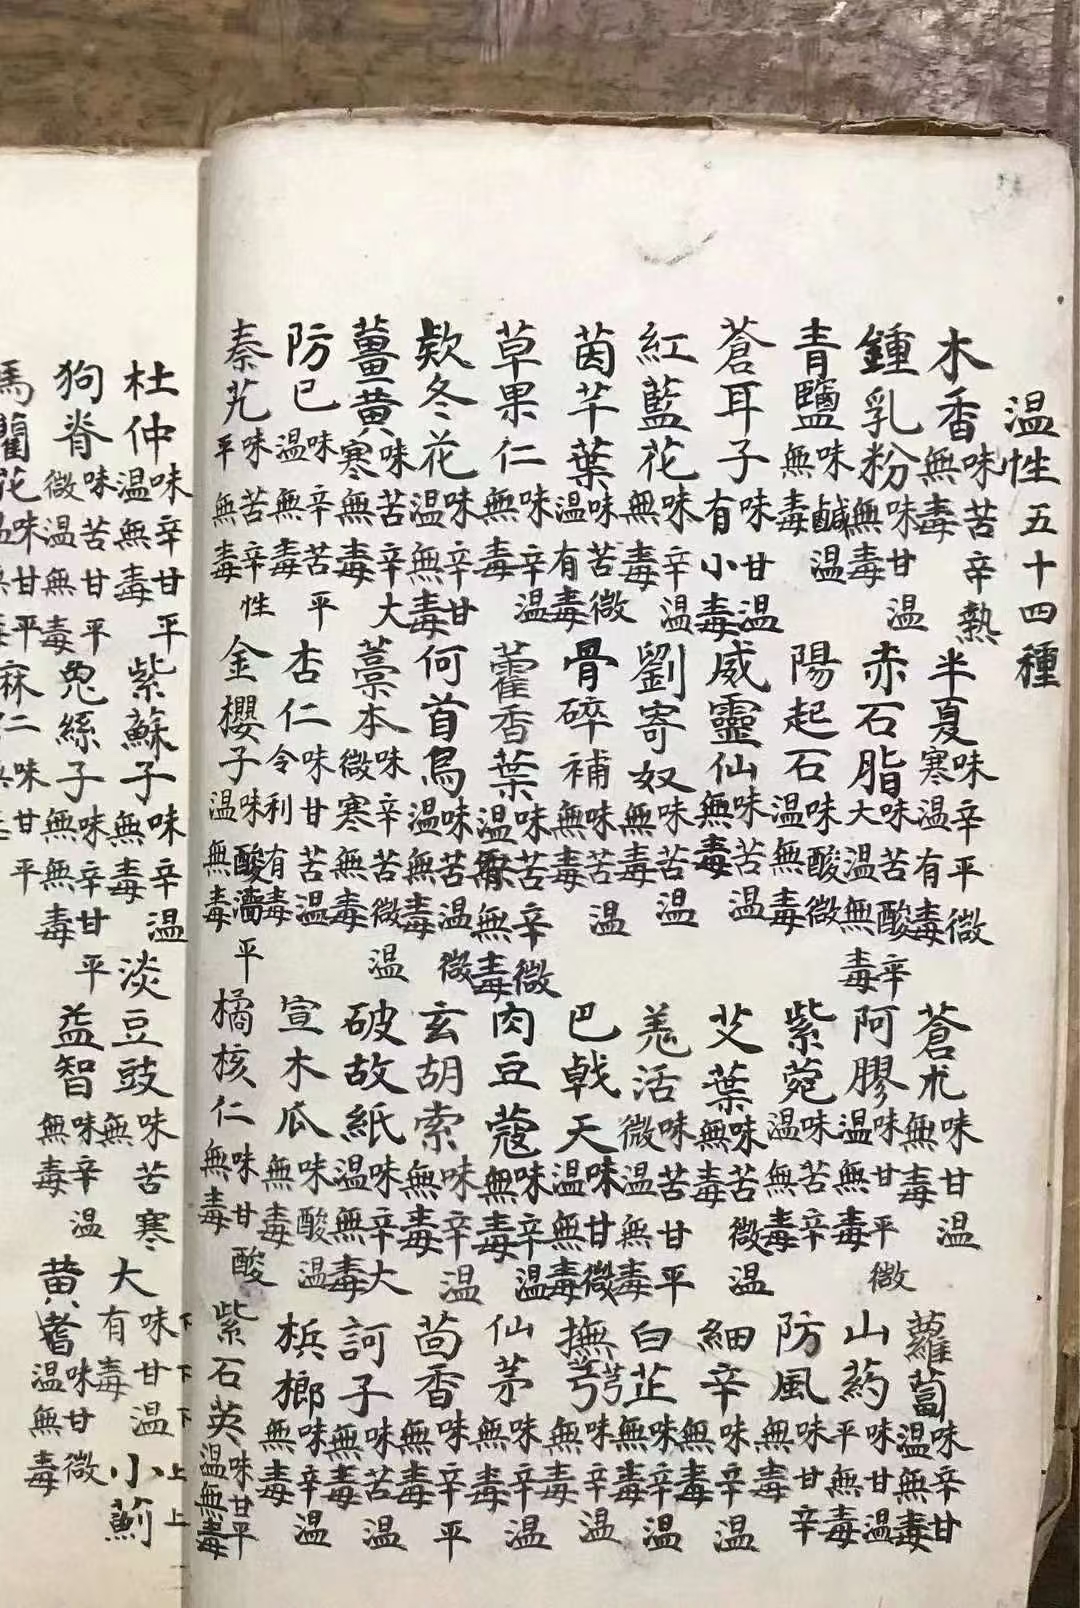 温性五十四種
木香味苦辛熱無毒 半夏味辛平微寒温有毒 蒼朮味甘温無毒 蘿蔔味辛甘温無毒
鍾乳粉味甘温無毒 赤石脂味苦酸辛大温無毒 阿膠味甘平微温無毒 山药味甘温平無毒
青鹽味鹹温無毒 陽起石味酸微温無毒 紫菀味苦辛温無毒 防風味甘辛無毒
蒼耳子味甘温有小毒 威靈仙味苦温無毒 艾葉味苦微温無毒 細辛味辛温無毒
紅藍花味辛温無毒 劉寄奴味苦温無毒 羌活味苦甘平微温無毒 白芷味辛温無毒
茵芊葉味苦微温有毒 骨碎補味苦温無毒 巴戟天味甘微温無毒 撫芎味辛温無毒
草果仁味辛温無毒 藿香葉味苦辛微温無毒 肉豆蔻味辛温無毒 仙茅味辛温無毒
欵冬花味辛甘温無毒 何首烏味苦温微温無毒 玄胡索味辛温無毒 茴香味辛平無毒
薑黄味苦辛大寒無毒 藁本味辛苦微温微寒無毒 破故紙味辛大温無毒 訶子味苦温無毒
防已味辛苦平温無毒 杏仁味甘苦温令利有毒 宣木瓜味酸温無毒 梹榔味辛温無毒
秦艽味苦辛性平無毒 金櫻子味酸濇平温無毒 橘核仁味甘酸無毒 紫石英味甘平温無毒
下下下上上
杜仲味辛甘平温無毒 紫蘇子味辛温無毒 淡豆豉味苦寒無毒 大味甘温有毒小薊
狗脊味苦甘平微温無毒 兔絲子味辛甘平無無毒 益智味辛温無毒 黄耆味甘微温無毒
馬藺花味甘平 麻仁味甘平